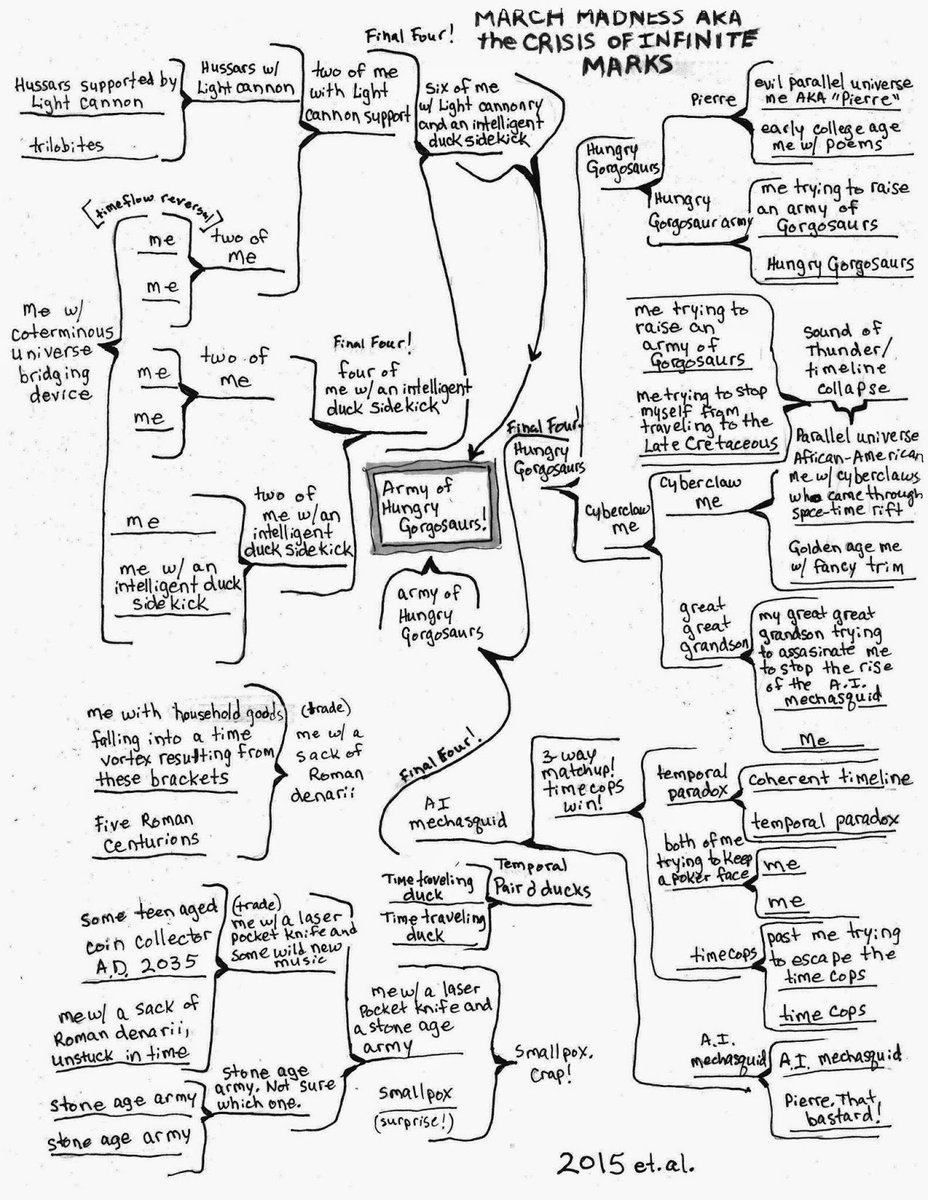 MARCH MADNESS AKA
the CRISIS OF INFINITE
MARKS
Final Four!
Hussars supported by
Light cannon
trilobites
Hussars w/
Light cannon
two of me
with Light
cannon support
six of me
w/ Light cannonry
and an intelligent
duck sidekick
[timeflow reversal]
me
me
two of
me
me w/
coterminous
universe
bridging
device
me
me
two of
me
Final Four!
four of
me w/ an intelligent
duck sidekick
me
me w/ an
intelligent duck
sidekick
two of
me w/an
intelligent
duck sidekick
Army of
Hungry
Gorgosaurs!
army of
Hungry
Gorgosaurs
Pierre
evil parallel universe
me AKA "Pierre"
early college age
me w/ poems
Hungry
Gorgosaurs
Hungry
Gorgosaur army
me trying to raise
an army of
Gorgosaurs
Hungry Gorgosaurs
me trying to
raise an
army of
Gorgosaurs
me trying to stop
myself from
traveling to the
Late Cretaceous
Sound of
Thunder/
timeline
collapse
Final Four!
Hungry
Gorgosaurs
Cyberclaw
me
Cyberclaw
me
Parallel universe
African-American
me w/ cyberclaws
who came through
space-time rift
Golden age me
w/ fancy trim
great
great
grandson
my great great
grandson trying
to assasinate me
to stop the rise
of the A.I.
mechasquid
Me
me with household goods
falling into a time
vortex resulting from
these brackets
Five Roman
Centurions
(trade)
me w/ a
sack of
Roman
denarii
Final Four!
A.I
mechasquid
3-way
matchup!
timecops
win!
temporal
paradox
coherent timeline
temporal paradox
both of me
trying to keep
a poker face
me
me
timecops
past me trying
to escape the
time cops
time cops
A.I.
mechasquid
A.I. mechasquid
Pierre. That
bastard!
Time traveling
duck
Time traveling
duck
Temporal
Pair o ducks
some teenaged
coin collector
A.D. 2035
me w/ a sack of
Roman denarii,
unstuck in time
(trade)
me w/ a laser
pocket knife and
some wild new
music
stone age army
stone age army
Stone age
army. Not sure
which one.
me w/ a laser
pocket knife and
a stone age
army
smallpox
(surprise!)
Smallpox.
Crap!
2015 et.al.